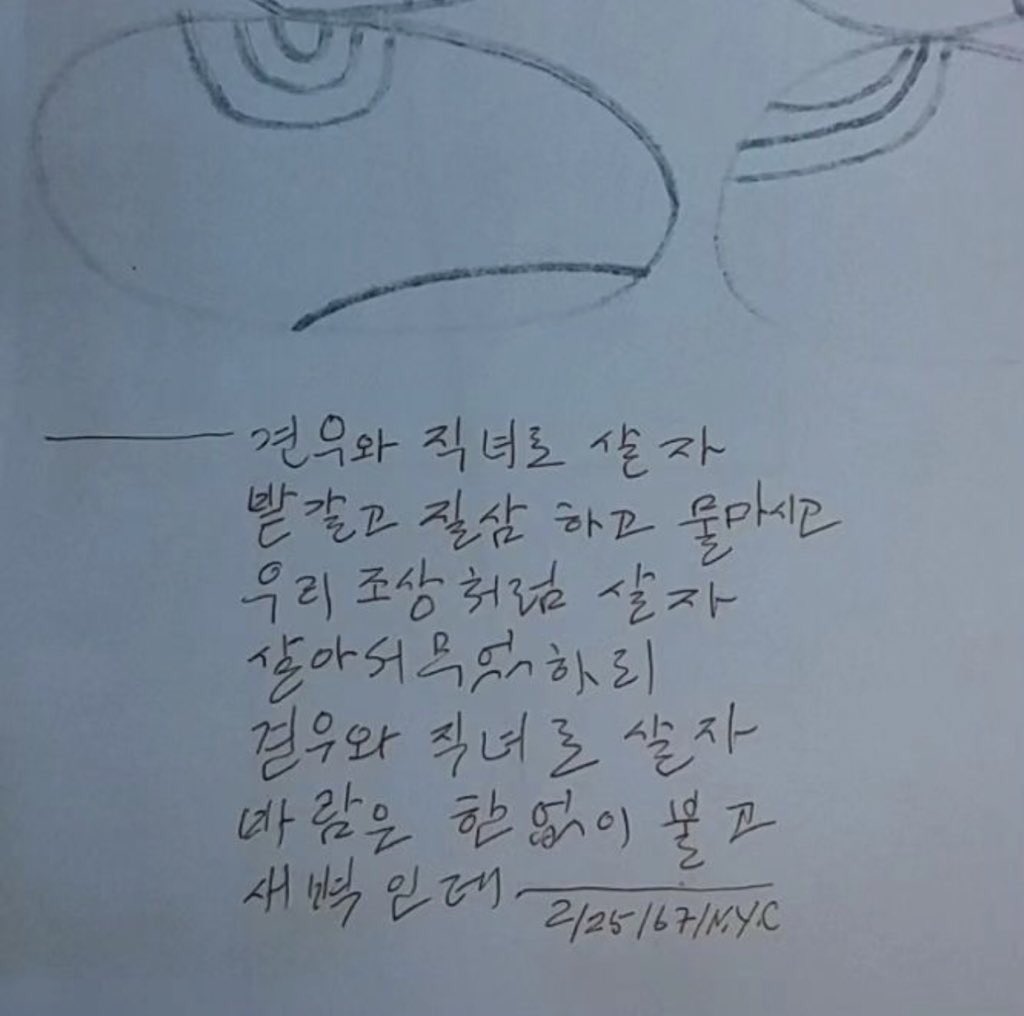 ——— 견우와 직녀로 살자
밭갈고 질삼 하고 물마시고
우리 조상처럼 살자
살아서 무엇하리
견우와 직녀로 살자
바람은 한없이 불고
새벽인데 ———
2/25/67/N.Y.C